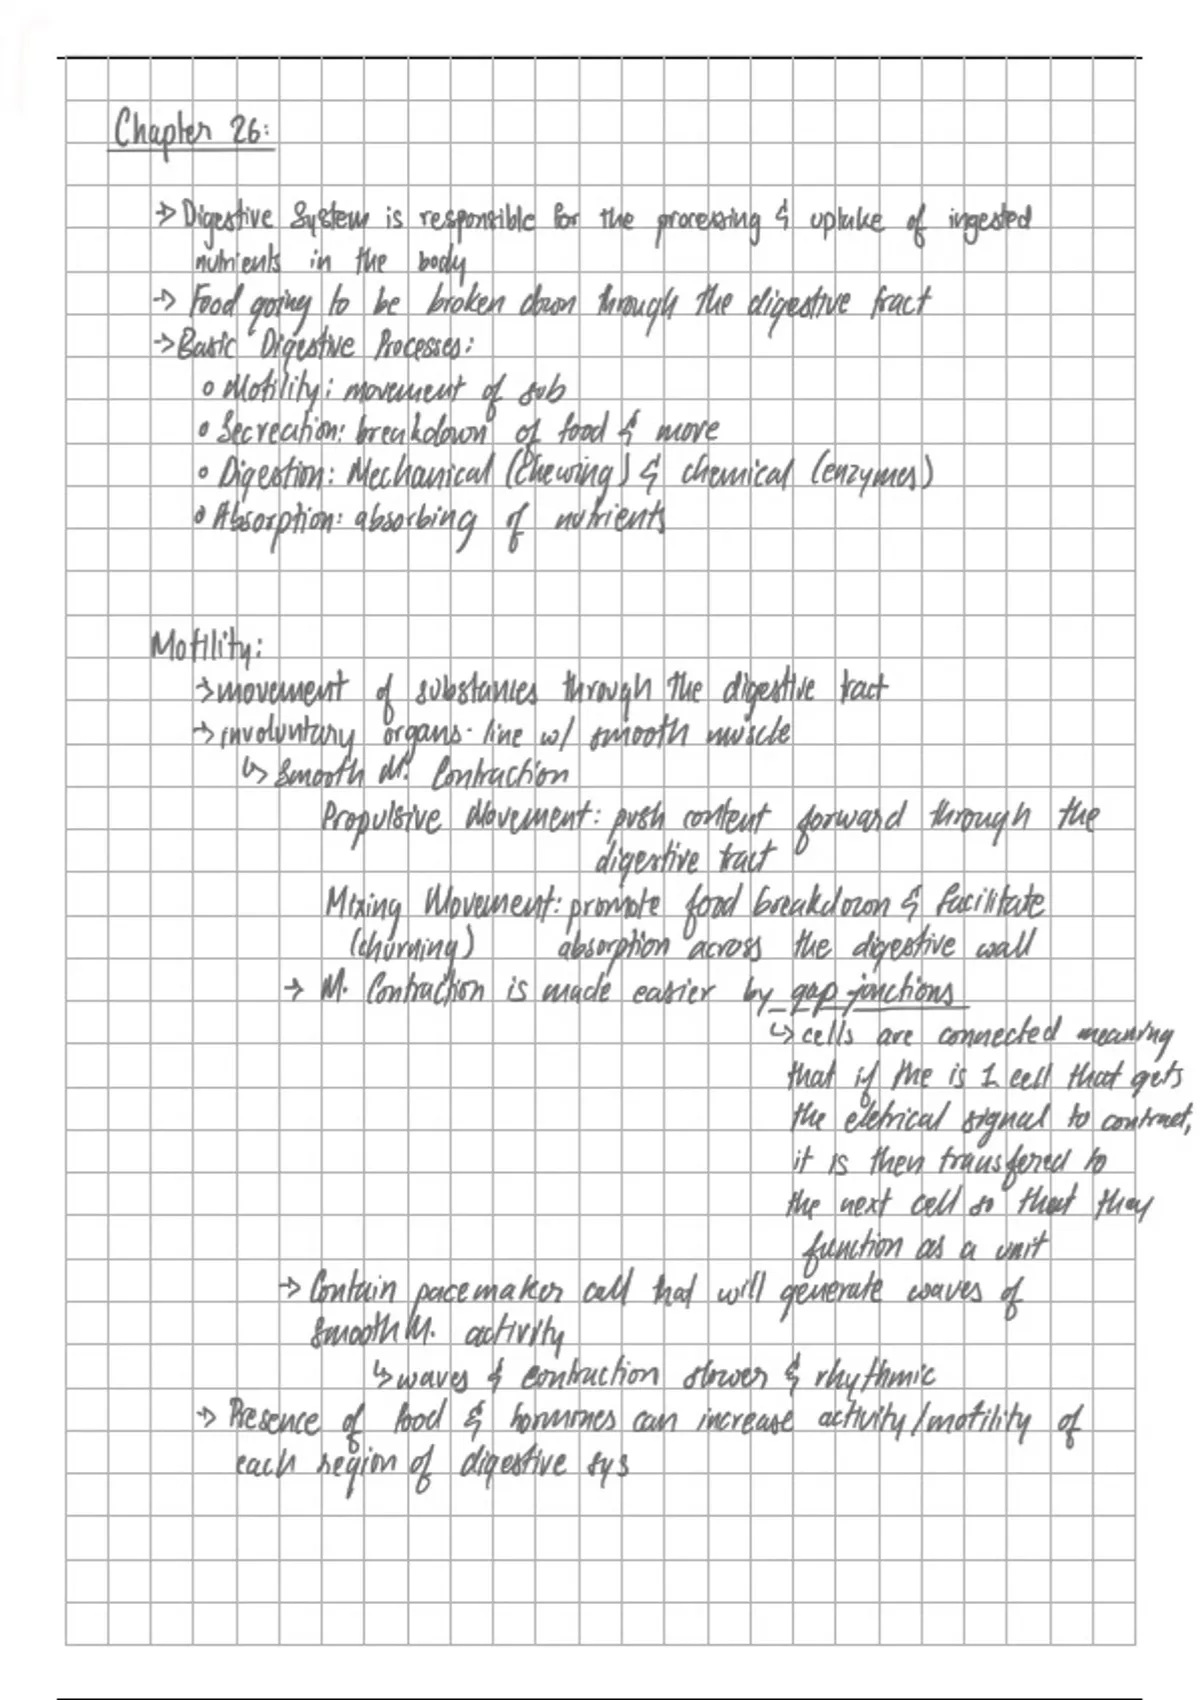 Chapter 26:
→ Digestive System is responsible for the processing & uptake of ingested
nutrients in the body
→ Food going to be broken down through the digestive tract
→ Basic Digestive Processes:
o Motility: movement of sub
o Secreation: breakdown of food & move
o Digestion: Mechanical (Chewing) & chemical (enzymes)
o Absorption: absorbing of nutrients
Motility:
→ movement of substances through the digestive tract
→ involuntary organs. line w/ smooth muscle
↳ Smooth M. Contraction
Propulsive Movement: push content forward through the
digestive tract
Mixing Movement: promote food breakdown & facilitate
(churning) absorption across the digestive wall
→ M. Contraction is made easier by gap junctions
↳ cells are connected meaning
that if the is 1 cell that gets
the eletrical signal to contract,
it is then transfered to
the next cell so that they
function as a unit
→ Contain pacemaker cell that will generate waves of
smooth M. activity
↳ waves & contraction slower & rhythmic
→ Presence of food & hormones can increase activity/motility of
each region of digestive sys